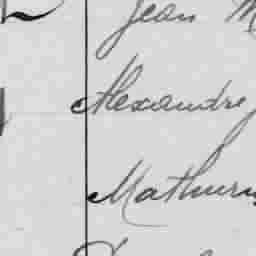 Jean M
Alexandre
Mathurin